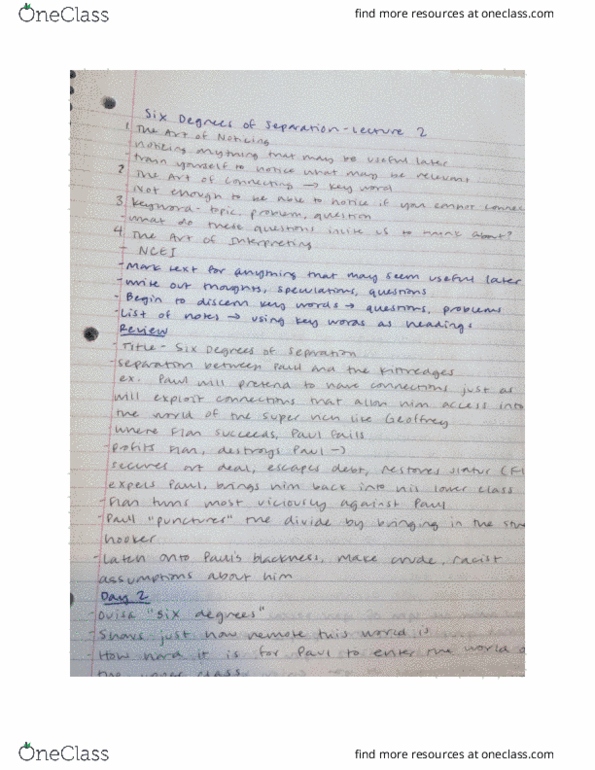 OneClass
find more resources at oneclass.com
Six Degrees of Separation - Lecture 2
1. The Art of Noticing
noticing anything that may be useful later
train yourself to notice what may be relevant
2 The Art of Connecting → key word
Not enough to be able to notice if you cannot connec
3 Keyword - topic, problem, question
- What do these questions invite us to think about?
4. The Art of Interpreting
- NCEI
- Mark text for anything that may seem useful later
- write out thoughts, speculations, questions
- Begin to discern key words → questions, problems
- List of notes → using key words as headings
Review
- Title - Six Degrees of Separation
- Separation between Paul and the Kittredges
ex. Paul will pretend to have connections just as
will exploit connections that allow him access into
the world of the super rich like Geoffrey
where Flan succeeds, Paul fails
- profits Flan, destroys Paul →
secures art deal, escapes debt, restores status (Fl
expels Paul, brings him back into his lower class
- Flan turns most viciously against Paul
- Paul "punctures" the divide by bringing in the
hooker
- Laten onto Paul's blackness, make crude, racist
assumptions about him
Day 2
- Ouisa "six degrees"
- Shows just how remote this world is
- How hard it is for Paul to enter the world
the upper class
OneClass
find more resources at oneclass.com